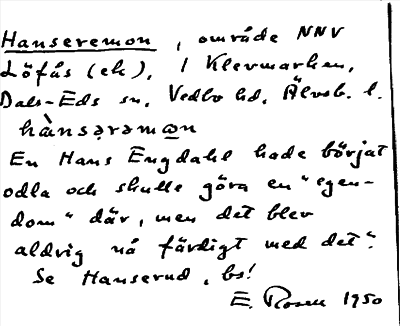 Hanseremon, område NNV
Löfås (ek), i Klevmarken,
Dals-Eds sn, Vedbo hd, Älvsb. l.
hànsǝrǝmo̲n
En Hans Engdahl hade börjat
odla och skulle göra en "egen-
dom" där, men det blev
aldrig nå färdigt med det".
Se Hanserud, bs!
E. Rosen 1950